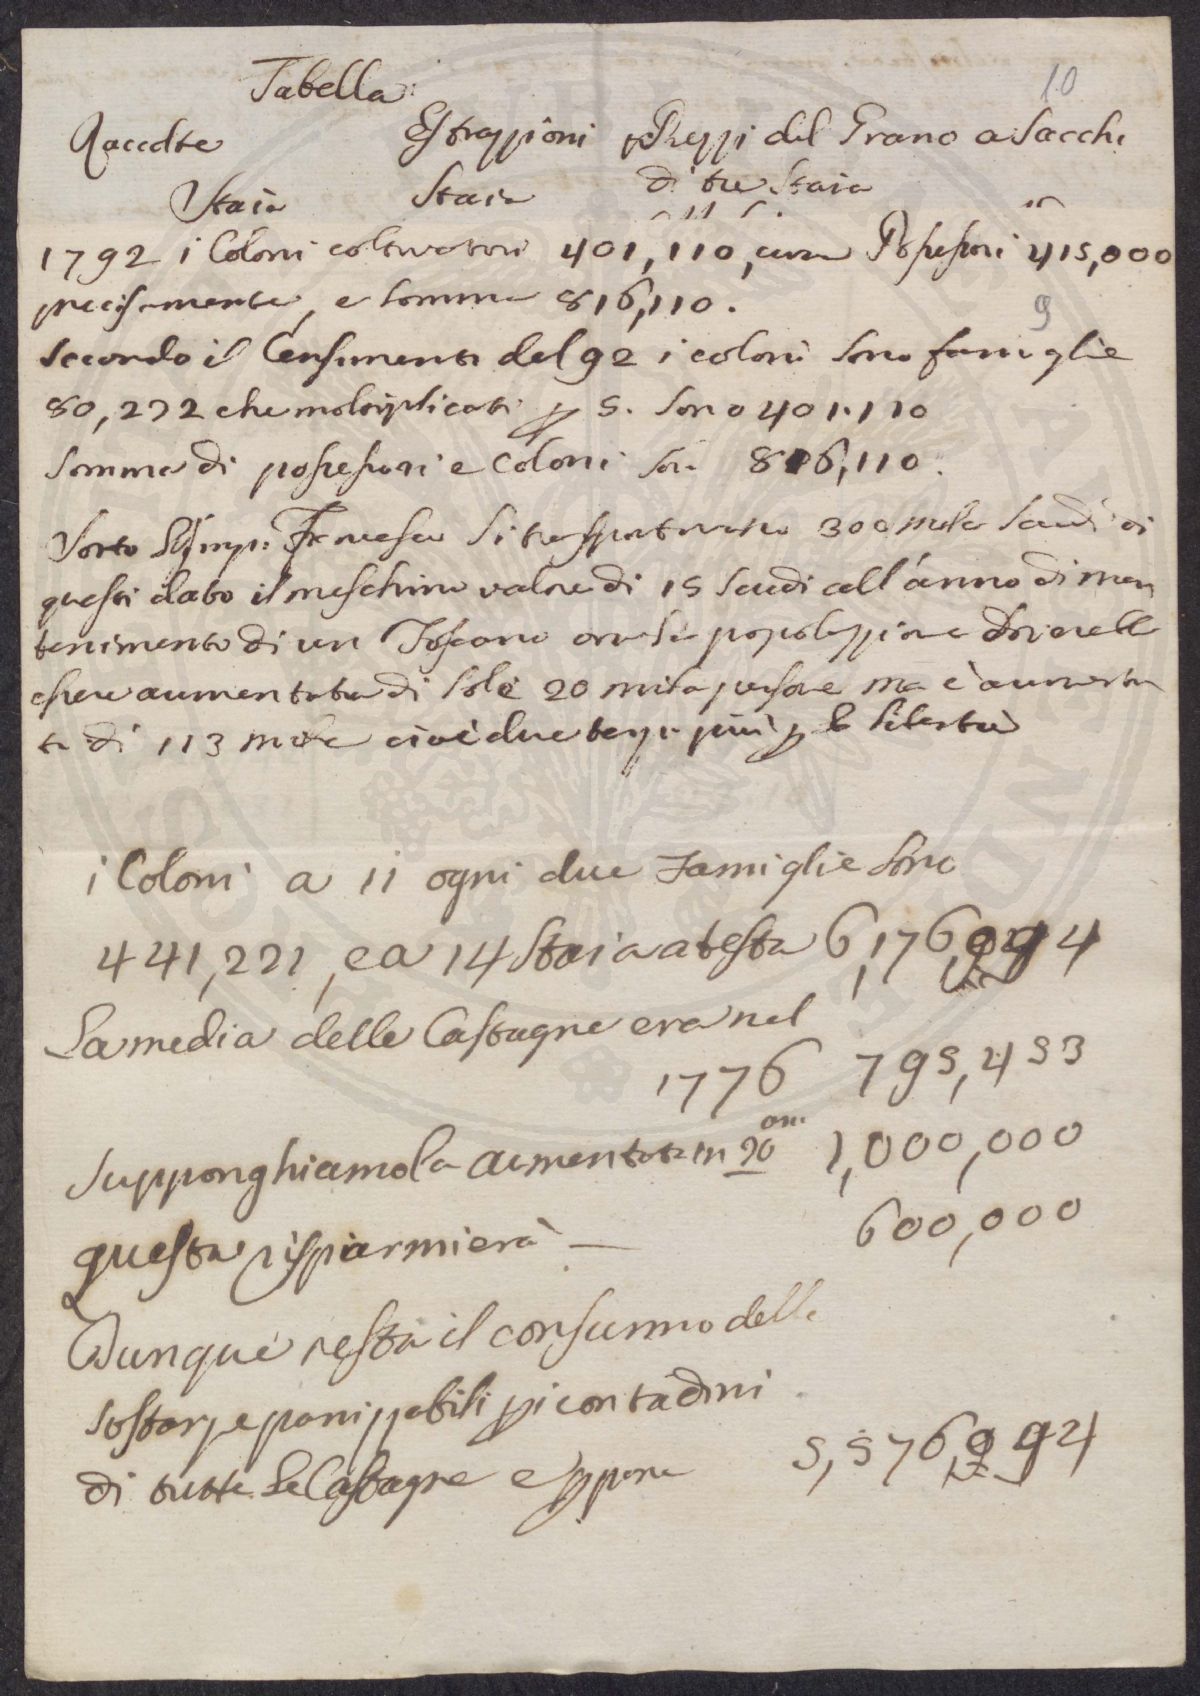 10
Tabella:
Raccolte Estrazzioni Prezzi del Grano a Sacchi
Staia Staia di tre Staia
1792 i Coloni coltivatori 401,110, Possessori 415,000
precisamente, e somma 816,110.
9
Secondo il Censimento del 92 i coloni sono famiglie
80,222 che moltiplicati p 5. sono 401.110
Somma di possessori e Coloni son 816,110.
Sotto Francesco si 300 mila Scudi
questi dato il meschino valore di 15 Scudi all'anno di man
tenimento di un Toscano popolazzione
essere aumentata di sole 20 mila persone ma è aumenta
ta di 113 mila cioè due terzi più p la libertà
i Coloni a 11 ogni due Famiglie sono
441,221, e a 14 Staia a testa 6,176,994
La media delle Castagne era nel
1776 795,453
Supponghiamola aumentata in 20 1,000,000
questa risparmierà — 600,000
Dunque resta il consumo delle
sostanze panizzabili p i contadini
di tutte le Castagne e 5,576,994